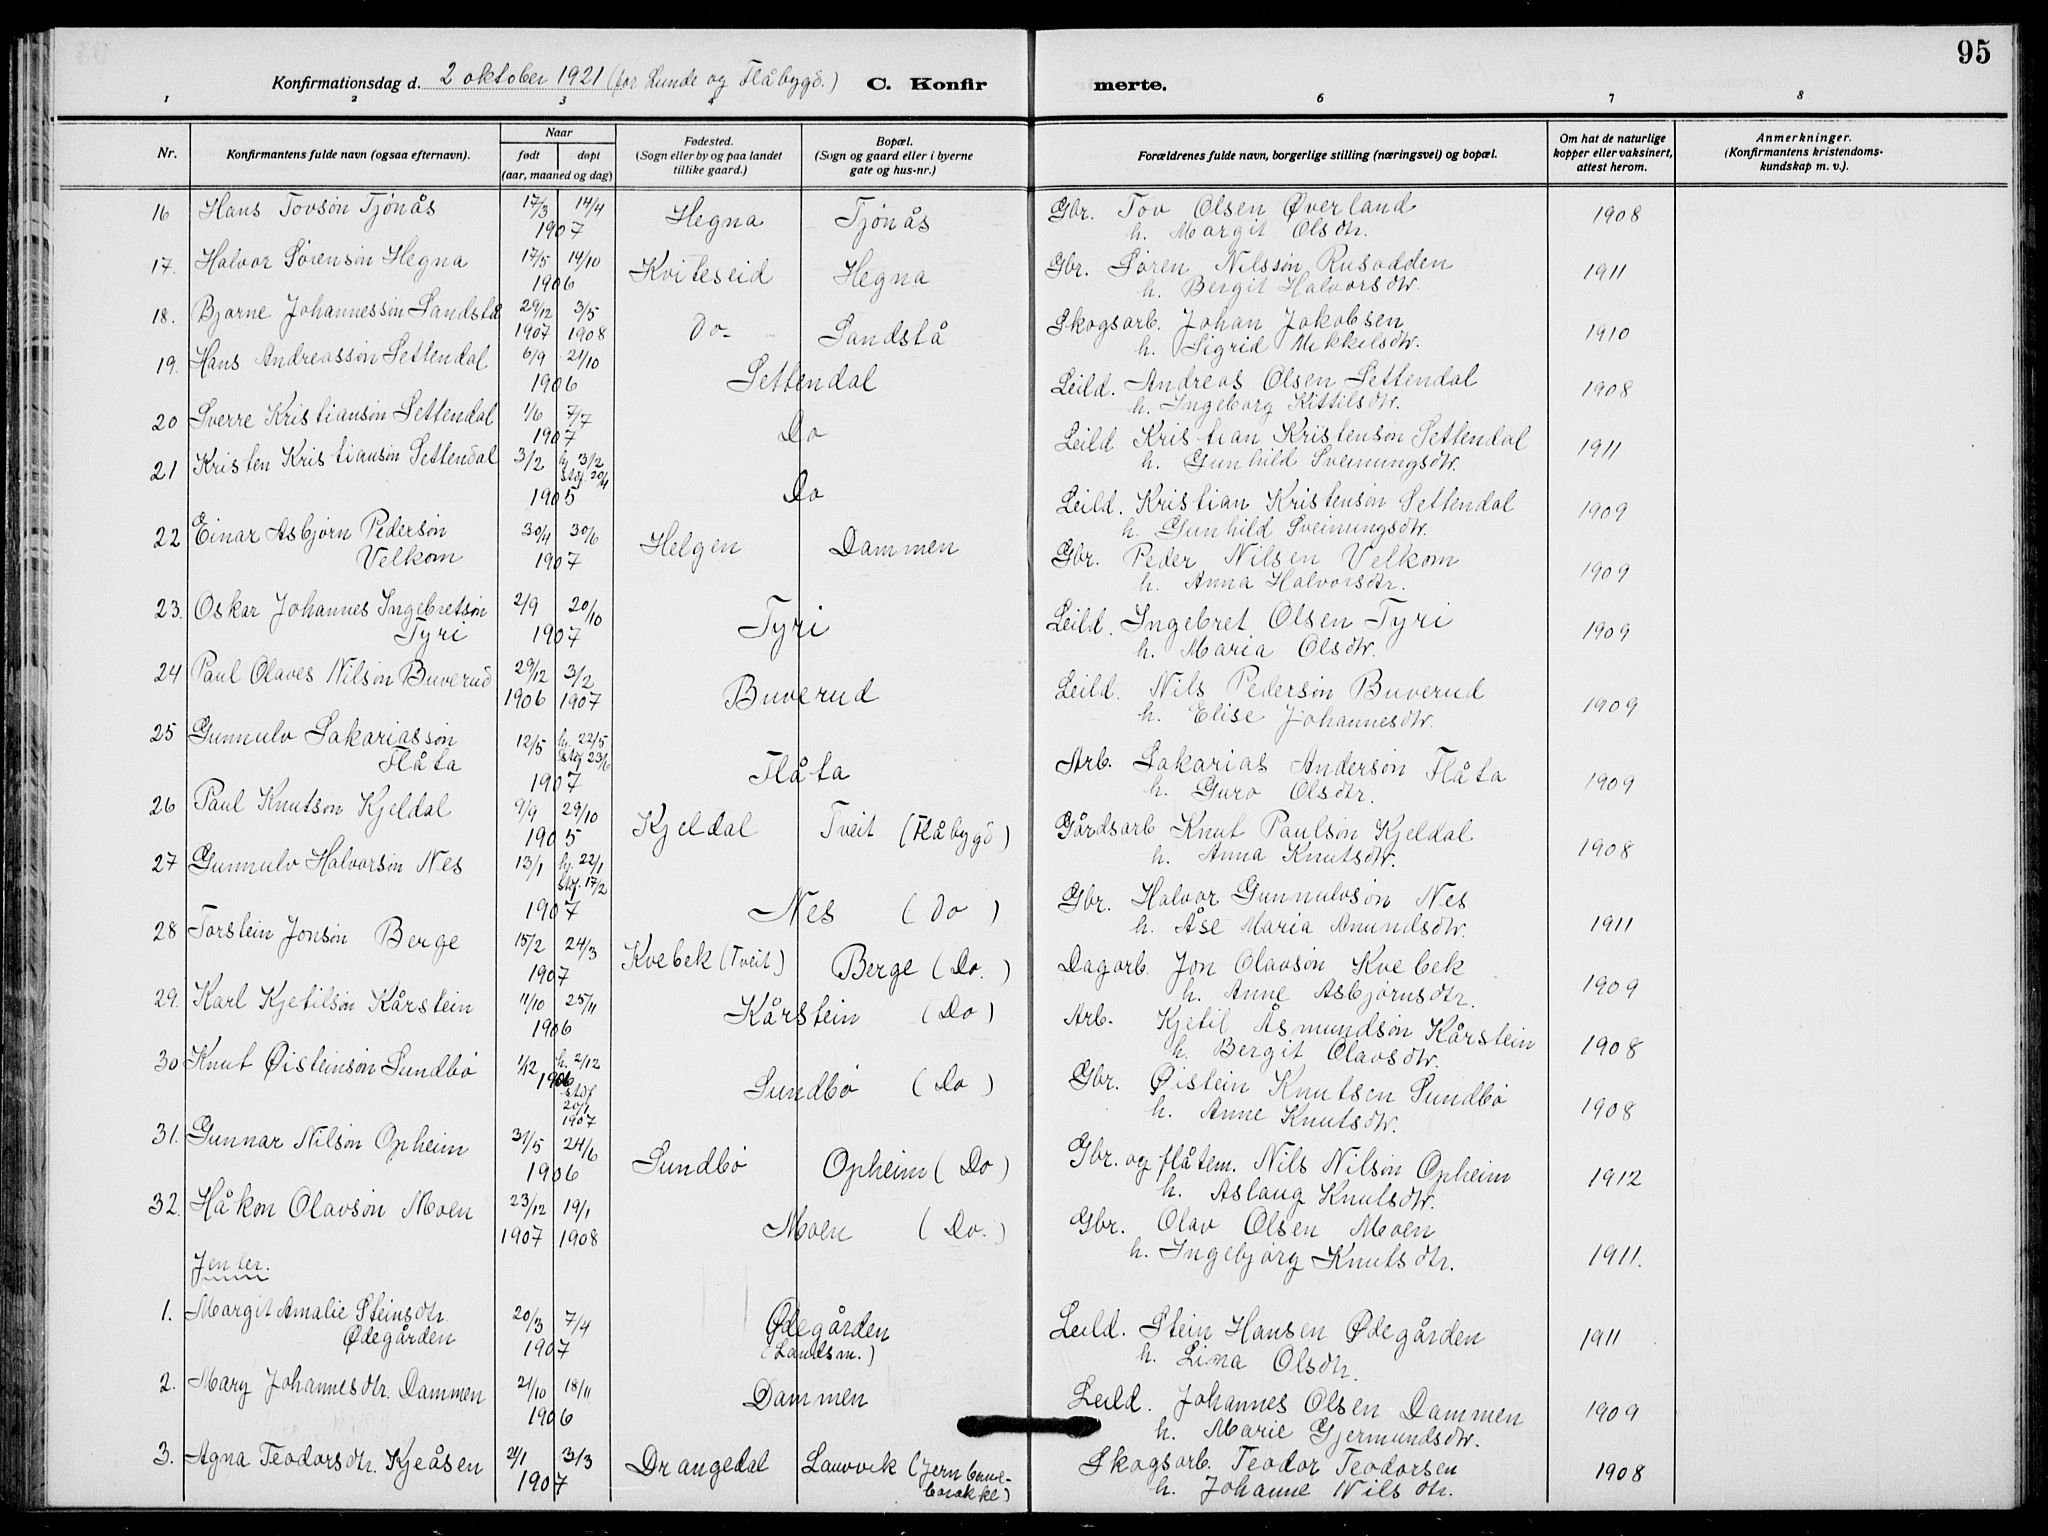 95
Konfirmationsdag d. 2 oktober 1921 (for Lunde og Flåbygd.) C. Konfirmerte.
1 2 3 4 6 7 8
Nr. Konfirmantens fulde navn (ogsaa efternavn). Naar født døpt (aar, maaned og dag) Fødested. (Sogn eller by og paa landet tillike gaard.) Bopæl. (Sogn og gaard eller i byerne gate og hus-nr.) Forældrenes fulde navn, borgerlige stilling (næringsvei) og bopæl. Om hat de naturlige kopper eller vaksinert, attest herom. Anmerkninger. (Konfirmantens kristendomskundskap m. v.).
16 Hans Tovsøn Tjønås 17/3 14/4 Hegna Tjønås Gbr. Tov Olsen Øverland 1908
1907 h. Margit Olsdtr.
17. Halvor Sørensøn Hegna 17/5 14/10 Kviteseid Hegna Gbr. Søren Nilssøn Rusodden 1911
1906 h. Bergit Halvorsdtr.
18. Bjarne Johannessøn Sandstå 29/12 3/5 Do- Sandstå Skogsarb. Johan Jakobsen 1910
1907 1908 h. Sigrid Mikkelsdtr.
19. Hans Andreassøn Settendal 6/9 21/10 Settendal Leild. Andreas Olsen Settendal 1908
1906 h. Ingeborg Kittilsdtr.
20 Sverre Kristiansøn Settendal 1/6 7/7 Do Leild Kristian Kristensøn Settendal 1911
1907 h. Gunhild Sveinungsdtr.
21 Kristen Kristiansøn Settendal 3/2 hj. 3/2 stdf. 20/4 Do Leild. Kristian Kristensøn Settendal 1909
1905 h. Gunhild Sveinungsdtr.
22 Einar Asbjørn Pedersøn 30/4 30/6 Helgen Dammen Gbr. Peder Nilsen Velkom 1909
Velkom 1907 h. Anna Halvorsdtr.
23. Oskar Johannes Ingebretsøn 2/9 20/10 Tyri Leild. Ingebret Olsen Tyri 1909
Tyri 1907 h. Maria Olsdtr.
24 Paul Olaves Nilsøn Buverud 29/12 3/2 Buverud Leild. Nils Pedersøn Buverud 1909
1906 1907 h. Elise Johannesdtr.
25 Gunnulv Sakariassøn 12/5 hj. 22/5 stdf 23/6 Flåta Arb. Sakarias Andersøn Flåta 1909
Flåta 1907 h. Guro Olsdtr.
26 Paul Knutsøn Kjeldal 9/9 29/10 Kjeldal Tveit (Flåbygd) Gårdsarb Knut Paulsøn Kjeldal 1908
1905 h. Anna Knutsdtr.
27 Gunnulv Halvorsøn Nes 13/1 hj. 22/1 stdf. 17/2 Nes (Do) Gbr. Halvor Gunnulvsøn Nes 1911
1907 h. Åse Maria Amundsdtr.
28 Torstein Jonsøn Berge 15/2 24/3 Kvebek (Tveit) Berge (Do.) Dagarb. Jon Olavsøn Kvebek 1909
1907 h. Anne Asbjørnsdtr.
29. Karl Kjetilsøn Kårstein 11/10 25/11 Kårstein (Do) Arb. Kjetil Åsmundsøn Kårstein 1908
1906 h. Bergit Olavsdtr.
30 Knut Øisteinsøn Sundbø 1/12 h. 2/12 Sundbø (Do) Gbr. Øistein Knutsen Sundbø 1908
1906 stdf 20/1 1907 h. Anne Knutsdtr.
31. Gunnar Nilsøn Opheim 31/5 24/6 Sundbø Opheim (Do) Gbr. og flåtem. Nils Nilsøn Opheim 1912
1906 h. Aslaug Knutsdtr.
32. Håkon Olavsøn Moen 23/12 19/1 Moen (Do.) Gbr. Olav Olsen Moen 1911.
1907 1908 h. Ingebjørg Knutsdtr.
Jenter.
1. Margit Amalie Steinsdtr. 20/3 7/4 Ødegården Leild. Stein Hansen Ødegården 1911
Ødegården 1907 (Landsm.) h. Lina Olsdtr.
2. Mary Johannesdtr. Dammen 21/10 18/11 Dammen Leild. Johannes Olsen Dammen 1909
1906 h. Marie Gjermundsdtr.
3. Agna Teodorsdtr. Kjeåsen 21/1 3/3 Drangedal Lauvvik (jernbane-barakke) Skogsarb. Teodor Teodorsen 1908
1907 h. Johanne Nilsdtr.